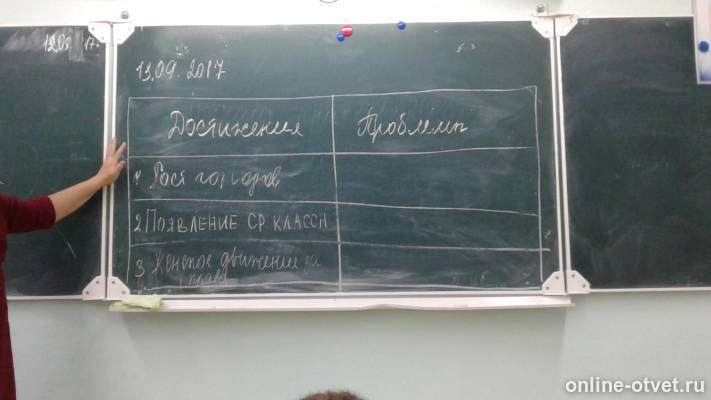 12.09. 17г
13.09.2017
Достижения
Проблемы
1 Рост городов
2 ПОЯВЛЕНИЕ СР КЛАССА
3 Женское движение за
права
online-otvet.ru